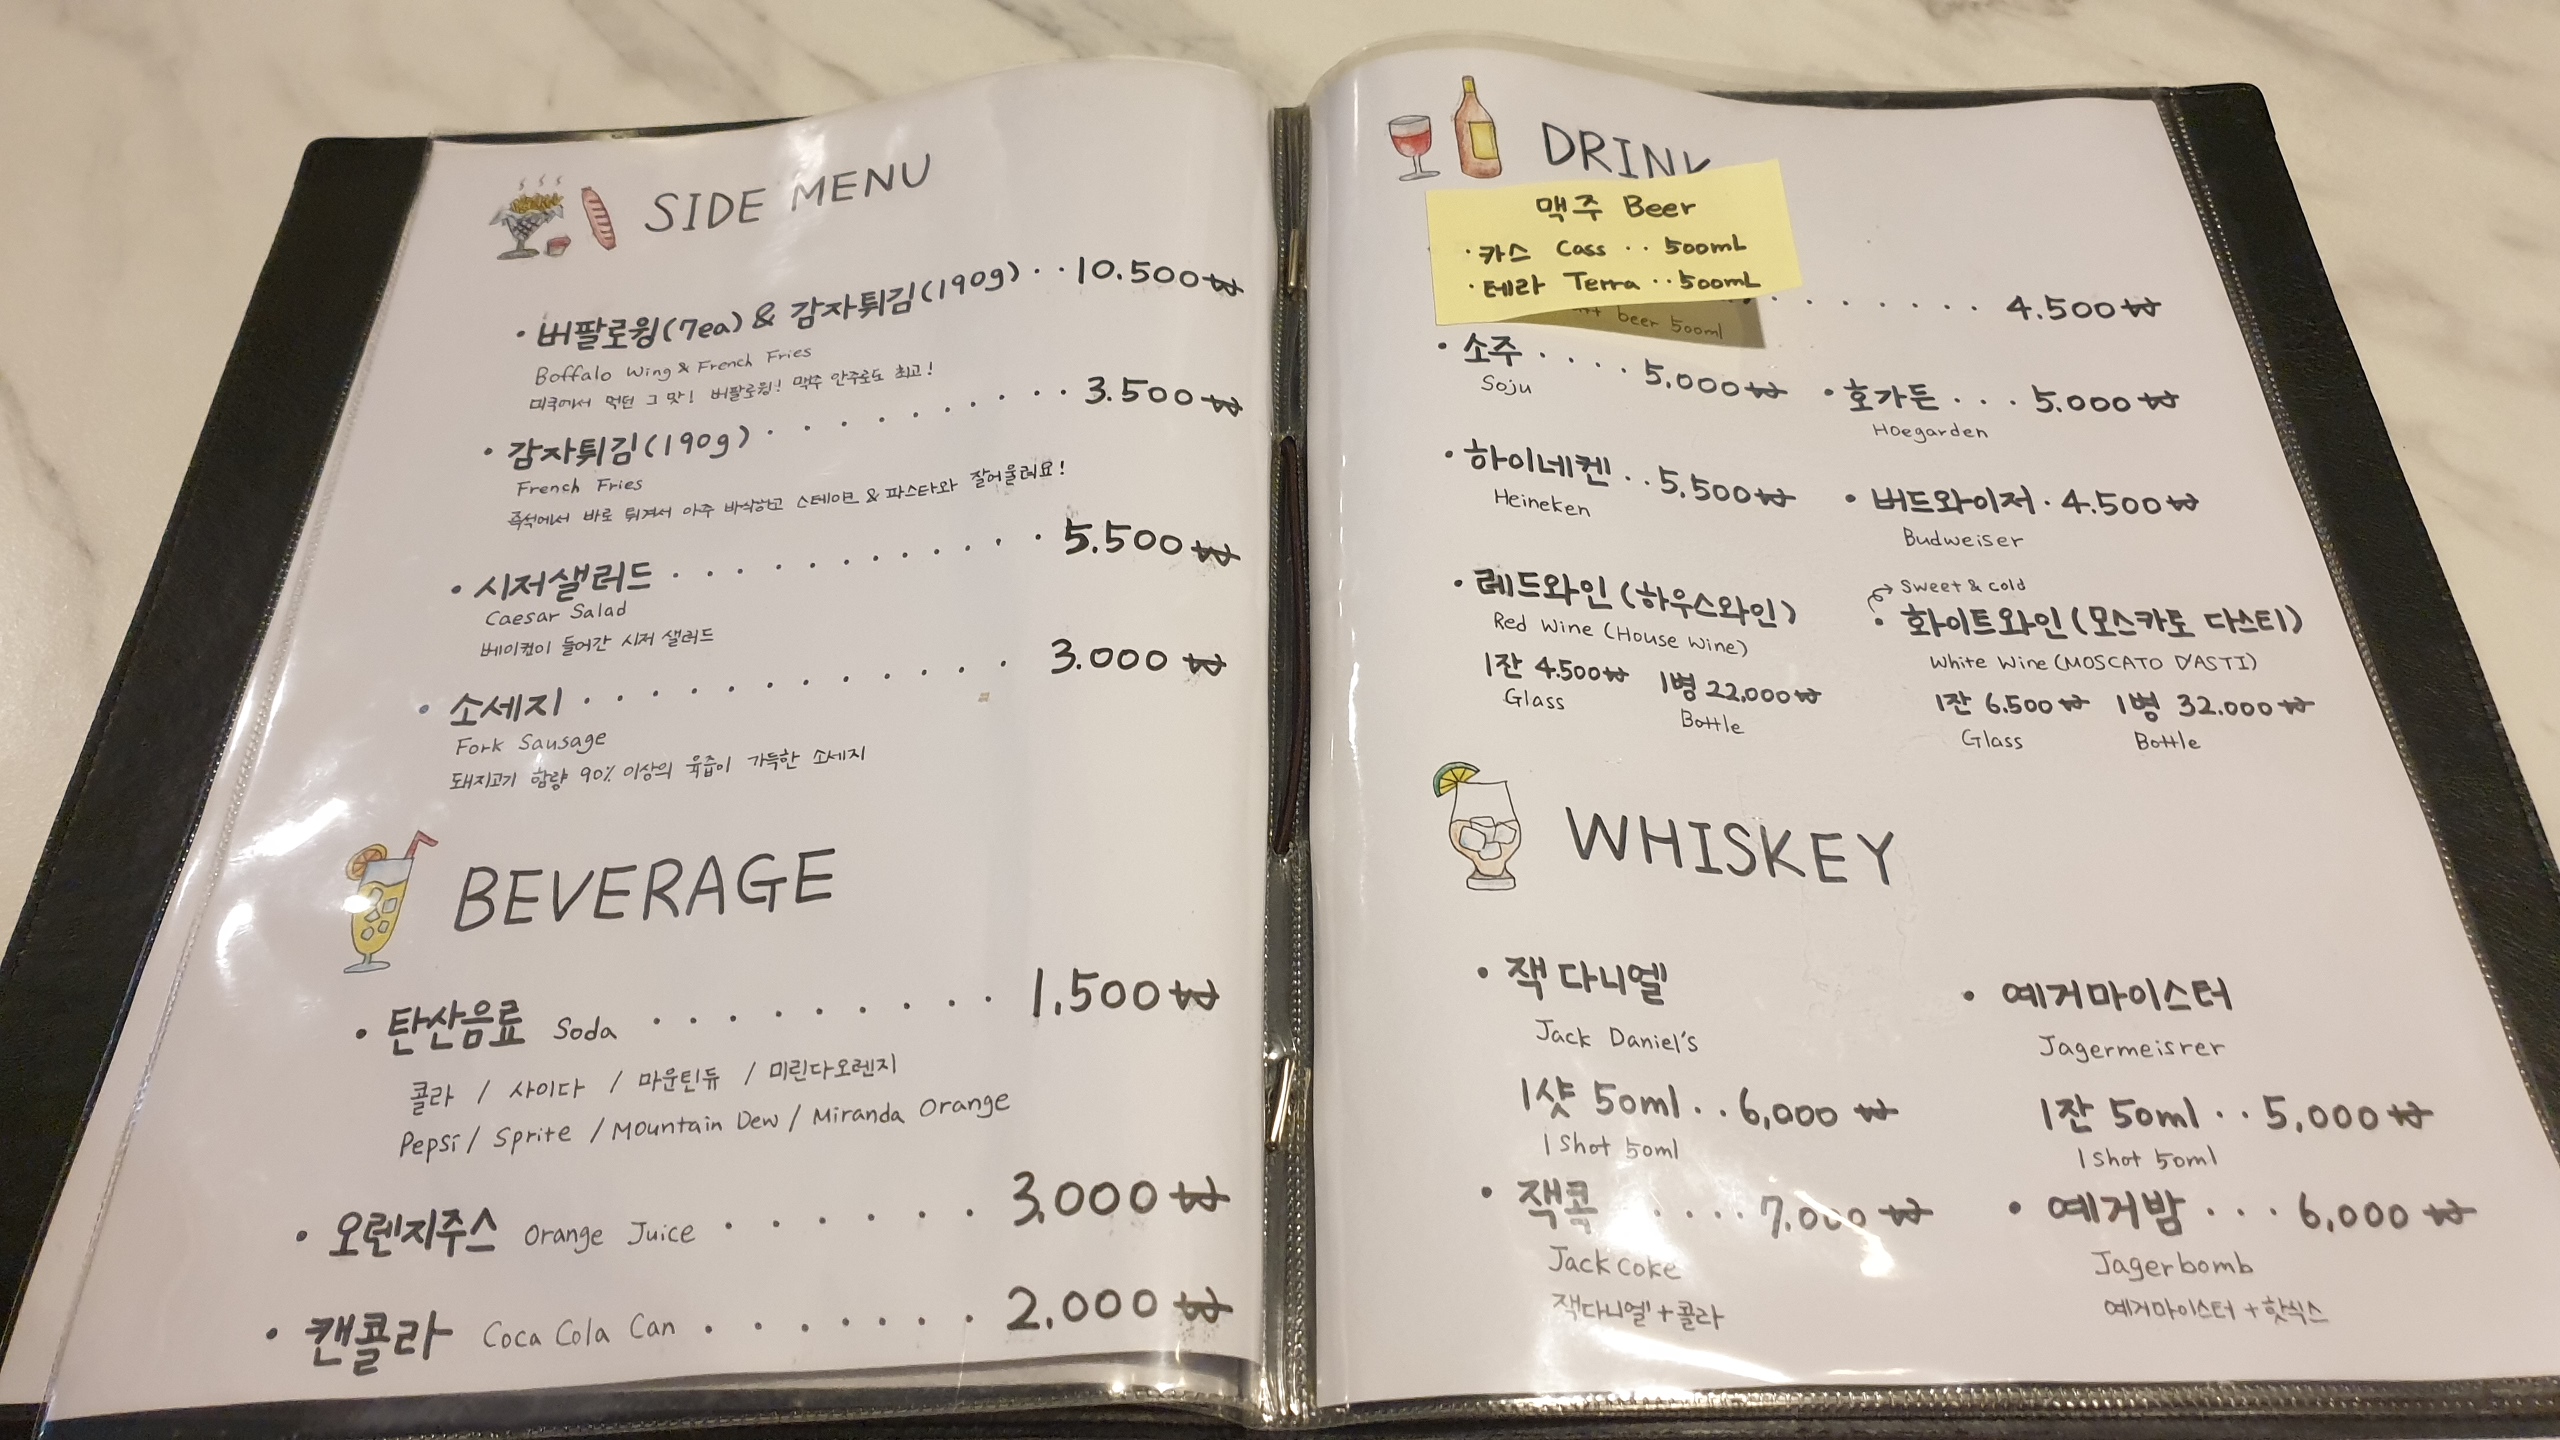 SIDE MENU
• 버팔로윙(7ea) & 감자튀김(190g) ･･ 10.500₩
Boffalo Wing & French Fries
미국에서 먹던 그 맛! 버팔로윙! 맥주 안주로도 최고!
• 감자튀김(190g) ･････････ 3.500₩
French Fries
즉석에서 바로 튀겨서 아주 바삭하고 스테이크 & 파스타와 잘어울려요!
• 시저샐러드 ･･････････ 5.500₩
Caesar Salad
베이컨이 들어간 시저 샐러드
• 소세지 ･･･････････ 3.000₩
Fork Sausage
돼지고기 함량 90% 이상의 육즙이 가득한 소세지
BEVERAGE
• 탄산음료 Soda ･････････ 1,500₩
콜라 / 사이다 / 마운틴듀 / 미린다오렌지
Pepsi / Sprite / Mountain Dew / Miranda Orange
• 오렌지주스 Orange Juice ･･････ 3,000₩
• 캔콜라 Coca Cola Can ･･･････ 2,000₩
DRINK
맥주 Beer
･카스 Cass ･･ 500mL
･테라 Terra ･･ 500mL
･･･････ 4.500₩
beer 500ml
• 소주 ････ 5,000₩
Soju
• 호가든 ･･･ 5.000₩
Hoegarden
• 하이네켄 ･･ 5,500₩
Heineken
• 버드와이저 ･ 4.500₩
Budweiser
• 레드와인 (하우스와인)
Red Wine (House Wine)
1잔 4.500₩ 1병 22,000₩
Glass Bottle
Sweet & cold
• 화이트와인 (모스카토 다스티)
White Wine (MOSCATO D'ASTI)
1잔 6.500₩ 1병 32.000₩
Glass Bottle
WHISKEY
• 잭 다니엘
Jack Daniel's
1샷 50ml ･･ 6,000₩
1 Shot 50ml
• 예거마이스터
Jagermeisrer
1잔 50ml ･･ 5,000₩
1 Shot 50ml
• 잭콕 ････ 7,000₩
Jack coke
잭다니엘 + 콜라
• 예거밤 ･･･ 6,000₩
Jager bomb
예거마이스터 + 핫식스